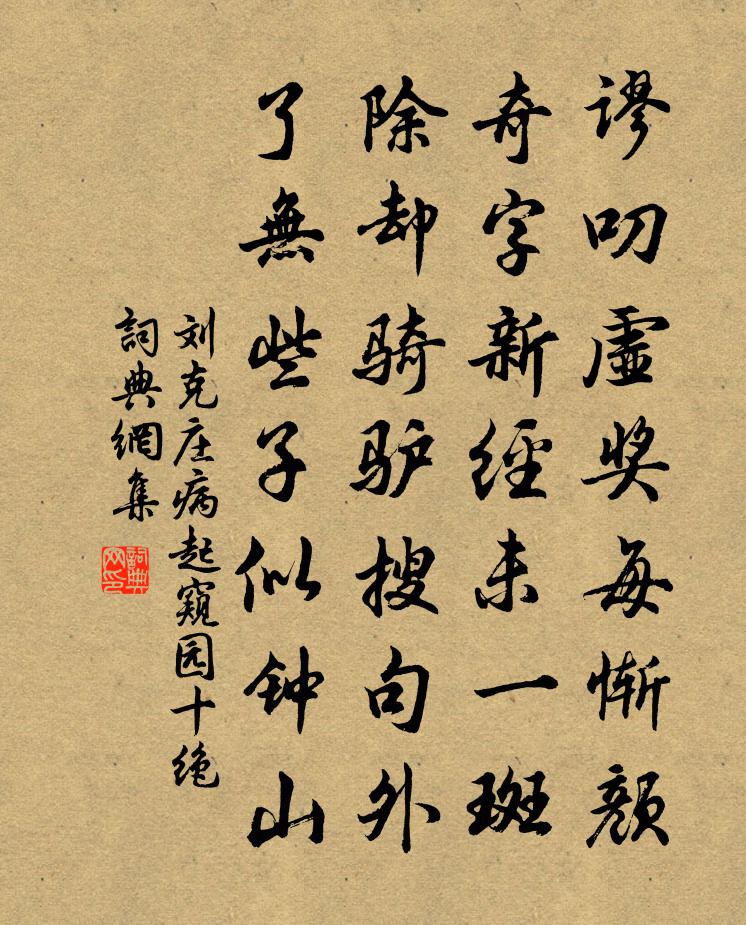 谬叨虚奖每惭颜
奇字新经未一斑
除却骑驴搜句外
了無些子似钟山
刘克庄病起窥园十绝
詞典網集
詞典
网印